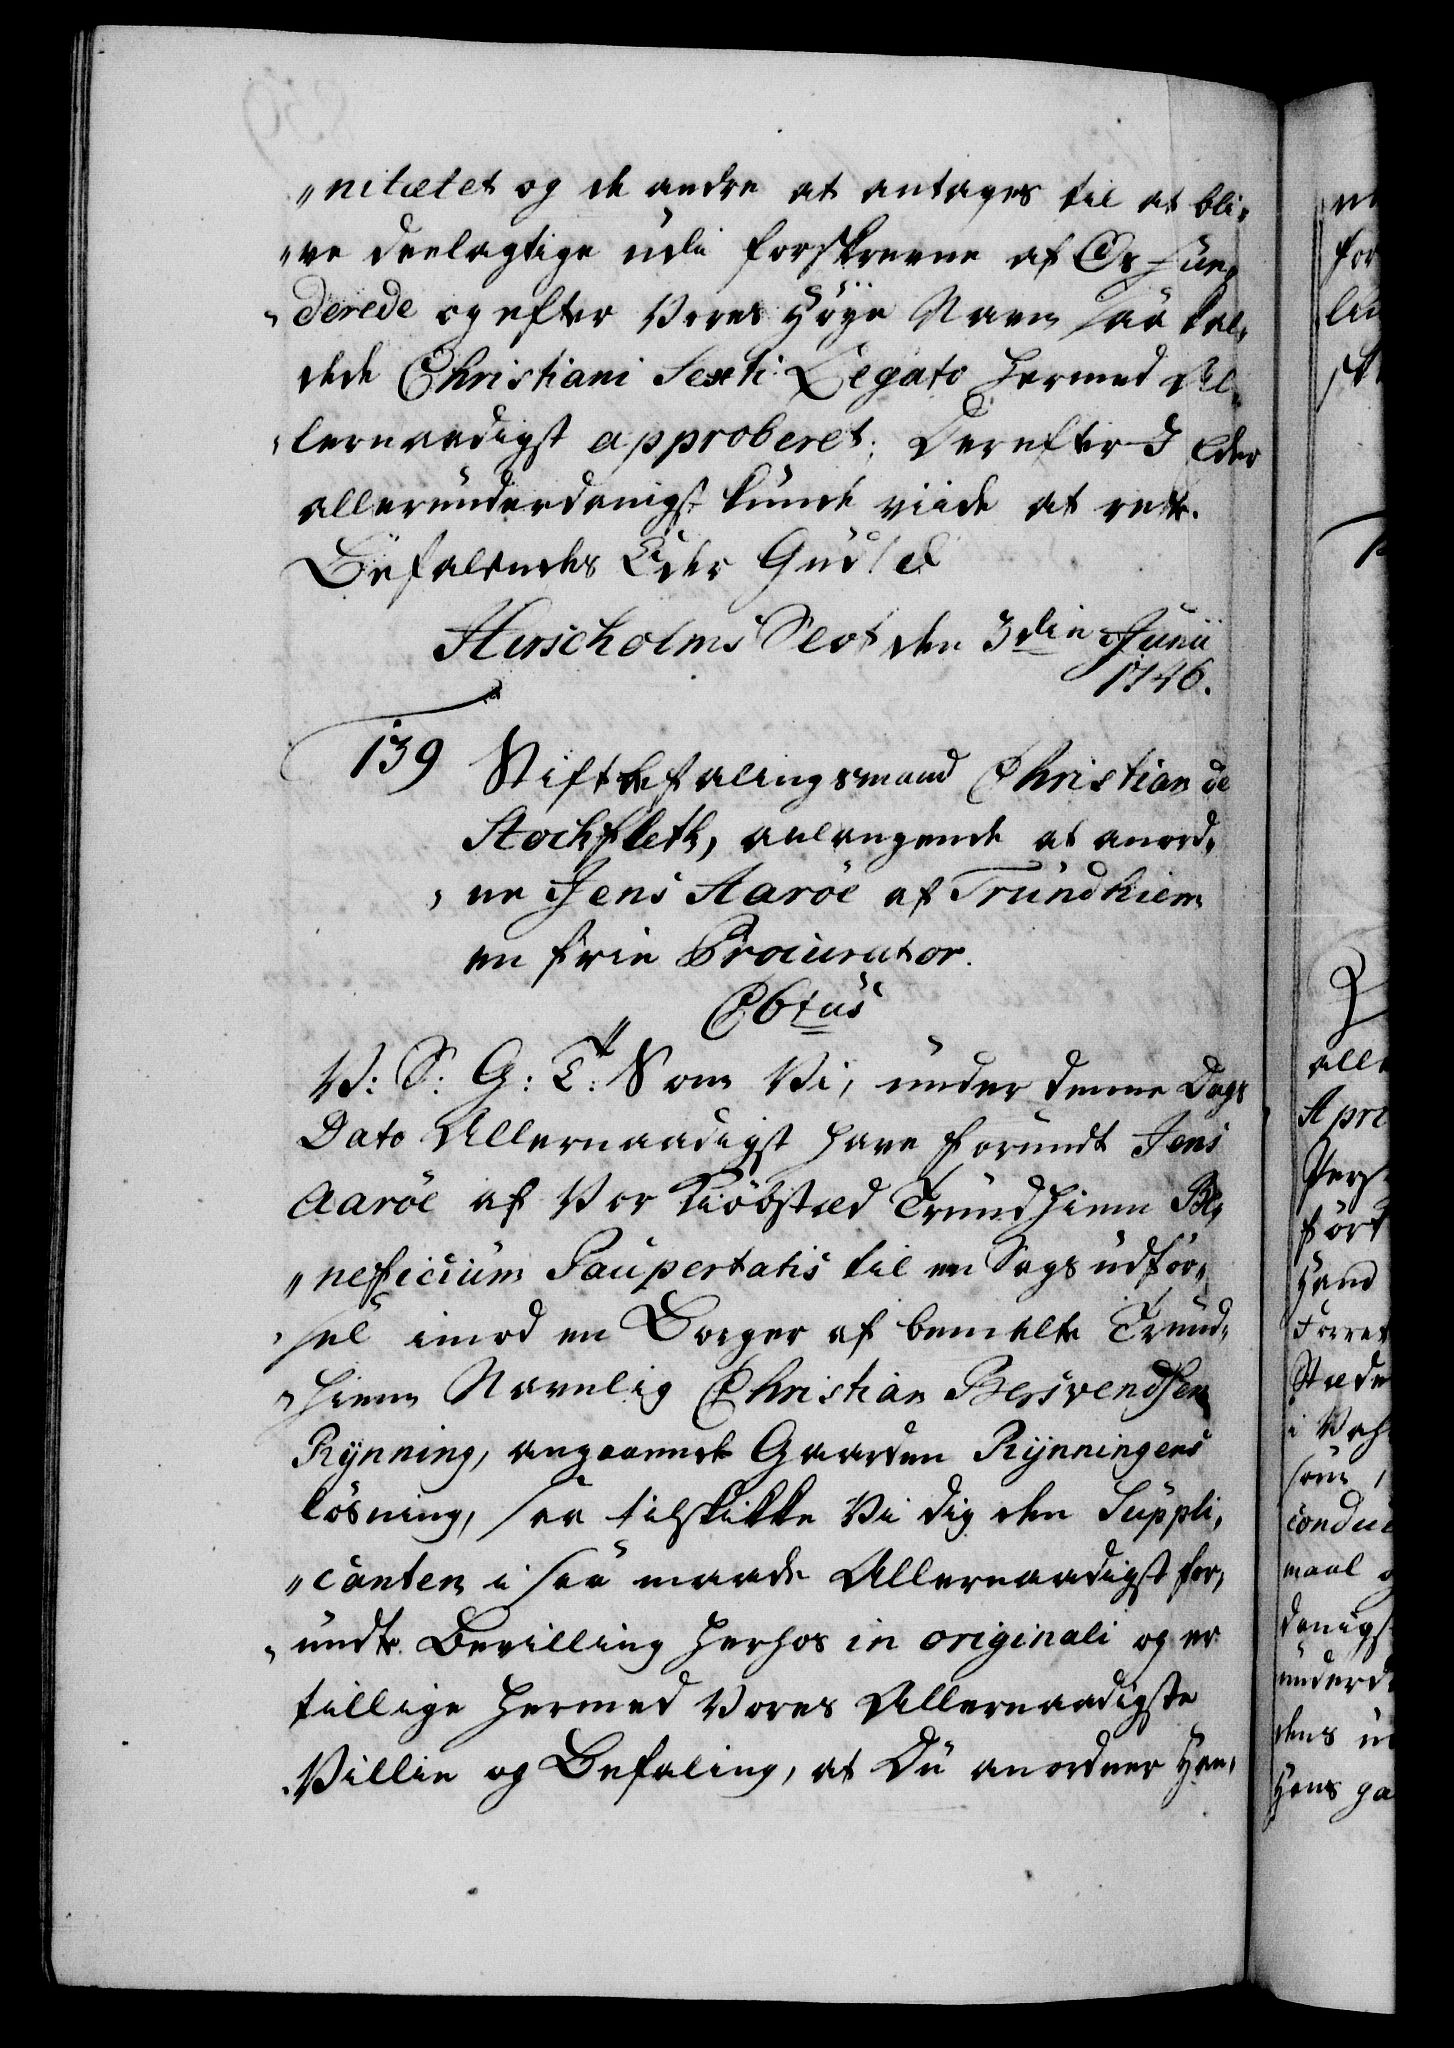 „nitætet og de andre at antages til at bli-
„ve deelagtige udi forskrevne af Os fun-
„derede og efter Vores Høye Navn saa kal-
dede Christiani Sexti Legato hermed Al-
„lernaadigst approberet. Derefter I Eder
allerunderdanigst kunde viide at rette.
Befalendes Eder Gud!
Hirscholms Slot den 3die Junii
1746.
139 Stiftbefalingsmand Christian de
Stockfleth, anlangende at anord-
„ne Jens Aaröe af Trundhiem
en frie Procurator.
V: S: G: T: Som Vi, under denne Dags
Dato Allernaadigst have forundt Jens
Aaröe af Vor Kiöbstæd Trundhiem Be-
„neficium Paupertatis til en Sags udför-
„sel imod en Borger af bemelte Trund-
„hiem Navnlig Christian Bersvendsen
Rÿnning, angaaende Gaarden Rÿnningens
lösning, saa tilskikke Vi dig den Suppli-
„canten i saa maade Allernaadigst for-
„undte Bevilling herhos in originali og er
tillige hermed Vores Allernaadigste
Villie og Befaling, at Du anordner Han-